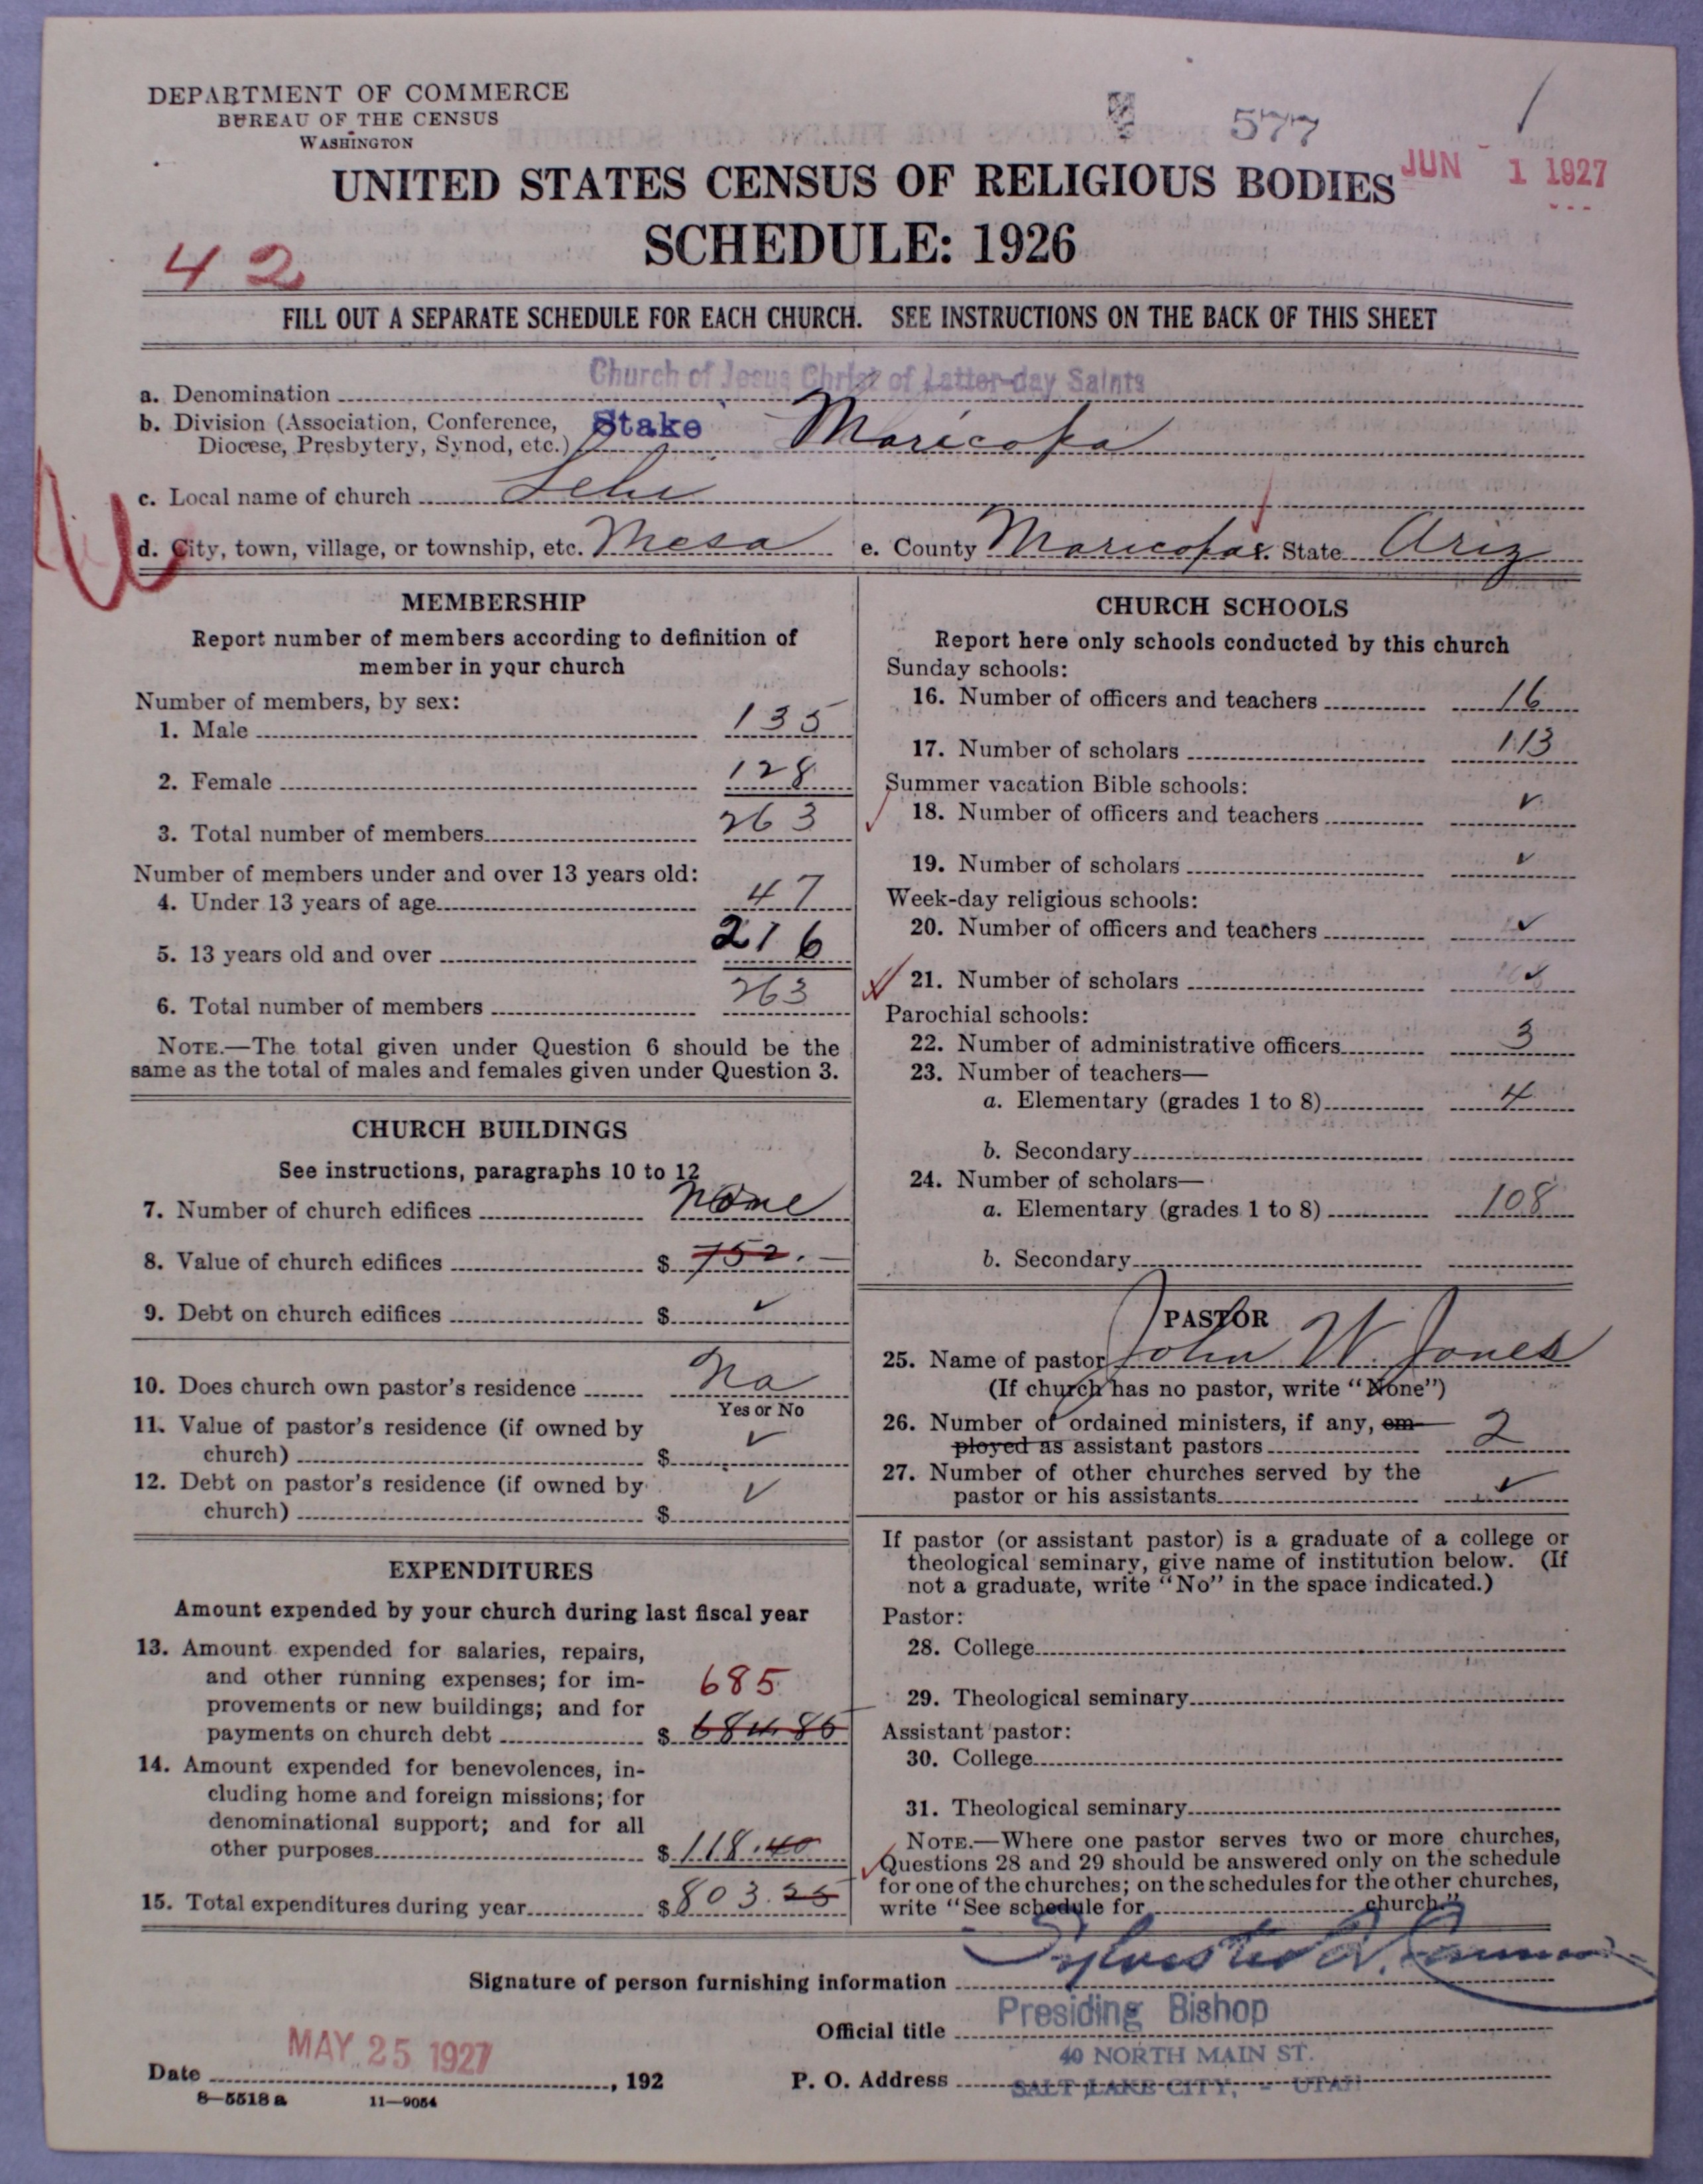 DEPARTMENT OF COMMERCE
BUREAU OF THE CENSUS
WASHINGTON
577
JUN 1 1927
UNITED STATES CENSUS OF RELIGIOUS BODIES
SCHEDULE: 1926
42
FILL OUT A SEPARATE SCHEDULE FOR EACH CHURCH. SEE INSTRUCTIONS ON THE BACK OF THIS SHEET
a. Denomination Church of Jesus Christ of Latter-day Saints
b. Division (Association, Conference, Diocese, Presbytery, Synod, etc.) Stake Maricopa
c. Local name of church Lehi
d. City, town, village, or township, etc. Mesa e. County Maricopa f. State Ariz
MEMBERSHIP
Report number of members according to definition of
member in your church
Number of members, by sex:
1. Male 135
2. Female 128
3. Total number of members 263
Number of members under and over 13 years old:
4. Under 13 years of age 47
5. 13 years old and over 216
6. Total number of members 263
NOTE.—The total given under Question 6 should be the
same as the total of males and females given under Question 3.
CHURCH BUILDINGS
See instructions, paragraphs 10 to 12
7. Number of church edifices None
8. Value of church edifices $ 752.—
9. Debt on church edifices $ ✓
10. Does church own pastor's residence No
Yes or No
11. Value of pastor's residence (if owned by
church) $ ✓
12. Debt on pastor's residence (if owned by
church) $ ✓
EXPENDITURES
Amount expended by your church during last fiscal year
13. Amount expended for salaries, repairs,
and other running expenses; for im-
provements or new buildings; and for
payments on church debt $ 684.86
685
14. Amount expended for benevolences, in-
cluding home and foreign missions; for
denominational support; and for all
other purposes $ 118.40
15. Total expenditures during year $ 803.25
CHURCH SCHOOLS
Report here only schools conducted by this church
Sunday schools:
16. Number of officers and teachers 16
17. Number of scholars 113
Summer vacation Bible schools:
18. Number of officers and teachers ✓
19. Number of scholars ✓
Week-day religious schools:
20. Number of officers and teachers ✓
21. Number of scholars ✓
Parochial schools:
22. Number of administrative officers 3
23. Number of teachers—
a. Elementary (grades 1 to 8) 4
b. Secondary
24. Number of scholars—
a. Elementary (grades 1 to 8) 108
b. Secondary
PASTOR
25. Name of pastor John W. Jones
(If church has no pastor, write "None")
26. Number of ordained ministers, if any, em-
ployed as assistant pastors 2
27. Number of other churches served by the
pastor or his assistants ✓
If pastor (or assistant pastor) is a graduate of a college or
theological seminary, give name of institution below. (If
not a graduate, write "No" in the space indicated.)
Pastor:
28. College
29. Theological seminary
Assistant pastor:
30. College
31. Theological seminary
NOTE.—Where one pastor serves two or more churches,
Questions 28 and 29 should be answered only on the schedule
for one of the churches; on the schedules for the other churches,
write "See schedule for church."
Signature of person furnishing information Sylvester Q. Cannon
Official title Presiding Bishop
Date MAY 25 1927, 192
P. O. Address 40 NORTH MAIN ST.
SALT LAKE CITY, - UTAH
8—5518 a 11—9054